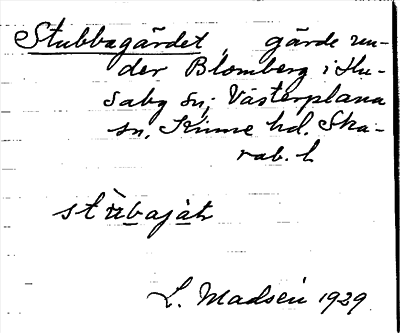 Stubbagärdet, gärde un-
der Blomberg i Hu-
saby sn; Västerplana
sn, Kinne hd. Ska-
rab. l
stùbajàṭ
L. Madsén 1929